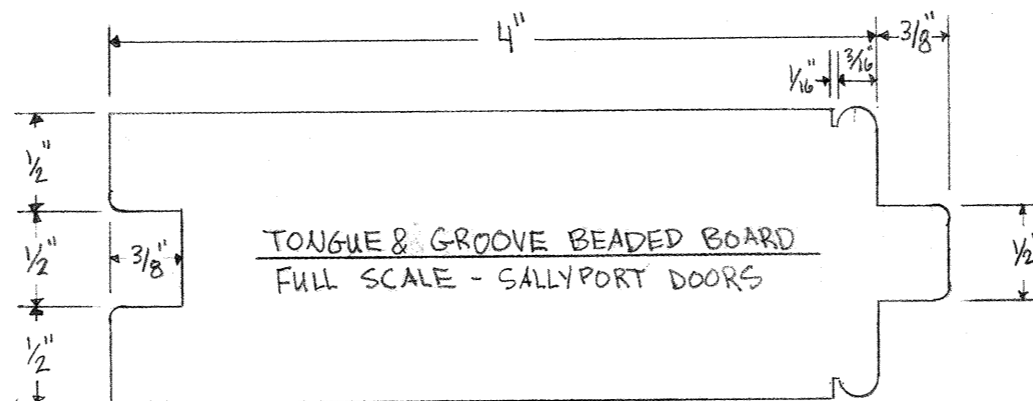 4"
3/8"
1/16"
3/16"
1/2"
1/2"
3/8"
1/2"
TONGUE & GROOVE BEADED BOARD
FULL SCALE - SALLYPORT DOORS
1/2"
1/2"